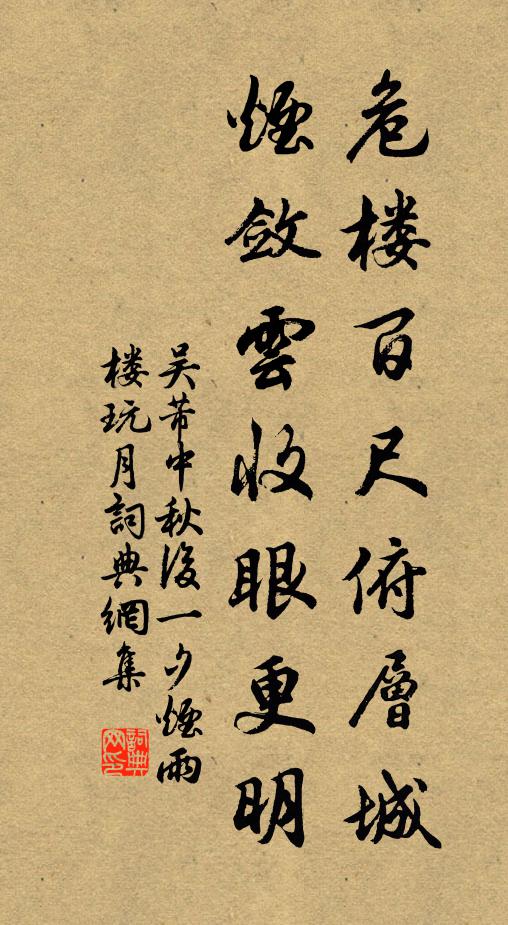 危楼百尺俯層城
煙斂雲收眼更明
吴芾中秋後一夕煙雨
楼玩月詞典網集
詞典网印